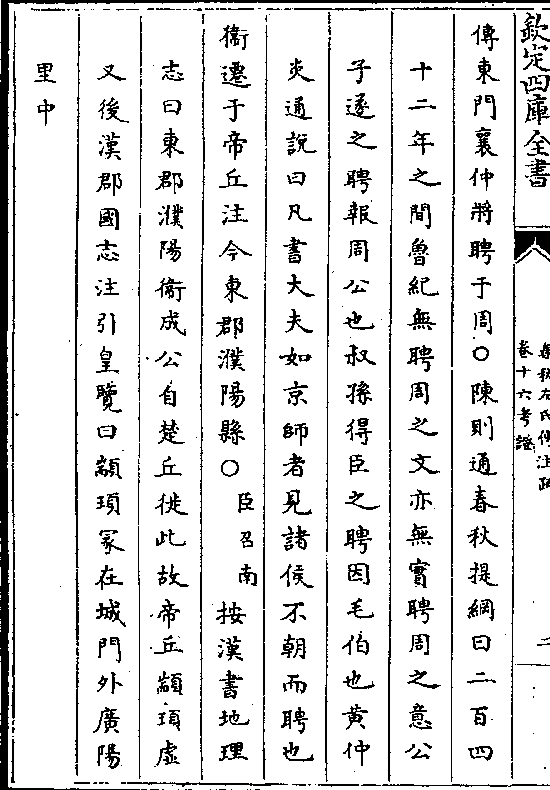 欽定四庫全書
春秋左氏傳注疏
卷十六考證
二
傳東門襄仲將聘于周○陳則通春秋提綱曰二百四
十二年之間魯紀無聘周之文亦無實聘周之意公
子遂之聘報周公也叔孫得臣之聘因毛伯也黄仲
炎通說曰凡書大夫如京師者見諸侯不朝而聘也
衞遷于帝丘注今東郡濮陽縣○臣召南按漢書地理
志曰東郡濮陽衞成公自楚丘徙此故帝丘顓頊虛
又後漢郡國志注引皇覽曰顓頊冢在城門外廣陽
里中